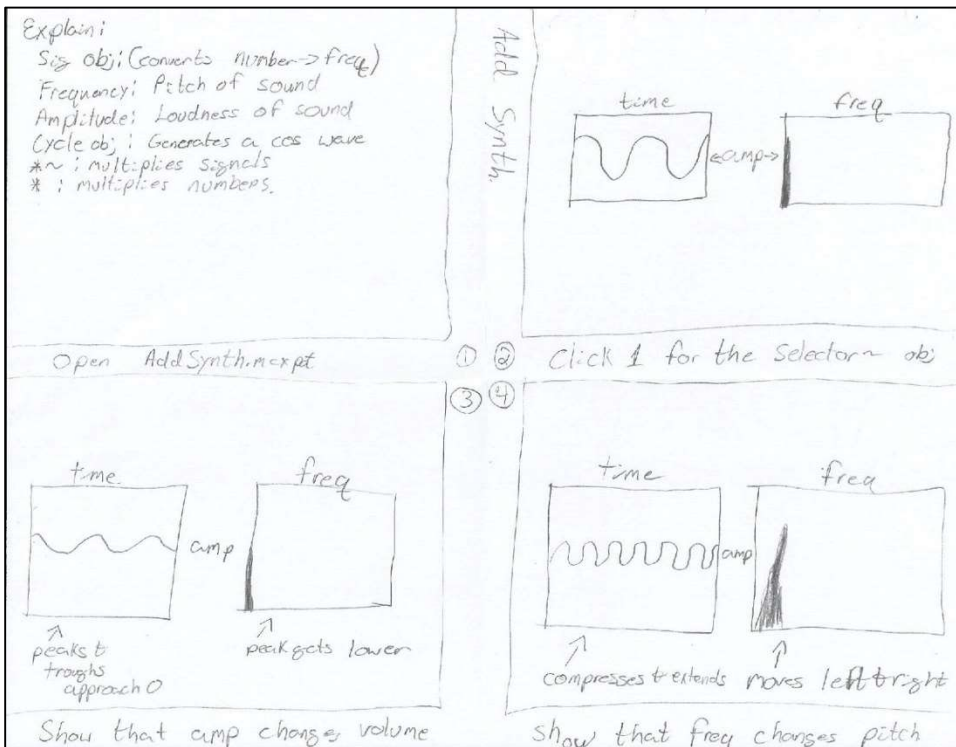 Explain:
Sig obj: (converts number->freq)
Frequency: Pitch of sound
Amplitude: Loudness of sound
Cycle obj: Generates a cos wave
*~ : multiplies signals
* : multiplies numbers.
Open AddSynth.maxpat
①
Add Synth.
time
freq
<-amp->
②
Click 1 for the Selector~ obj
③
time
freq
amp
peaks &
troughs
approach 0
peak gets lower
Show that amp changes volume
④
time
freq
amp
compresses & extends
moves left & right
Show that freq changes pitch